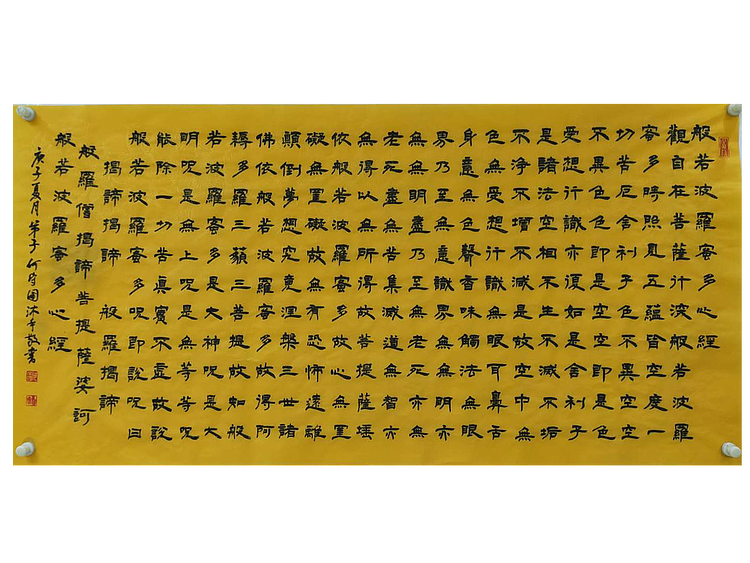 般若波羅蜜多心經
觀自在菩薩行深般若波羅
蜜多時照見五蘊皆空度一
切苦厄舍利子色不異空空
不異色色即是空空即是色
受想行識亦復如是舍利子
是諸法空相不生不滅不垢
不淨不增不減是故空中無
色無受想行識無眼耳鼻舌
身意無色聲香味觸法無眼
界乃至無意識界無無明亦
無無明盡乃至無老死亦無
老死盡無苦集滅道無智亦
無得以無所得故菩提薩埵
依般若波羅蜜多故心無罣
礙無罣礙故無有恐怖遠離
顛倒夢想究竟涅槃三世諸
佛依般若波羅蜜多故得阿
耨多羅三藐三菩提故知般
若波羅蜜多是大神呪是大
明呪是無上呪是無等等呪
能除一切苦真實不虛故說
般若波羅蜜多呪即說呪曰
揭諦揭諦 般羅揭諦
般羅僧揭諦 菩提薩婆訶
般若波羅蜜多心經
庚子夏月弟子何守國沐手敬書